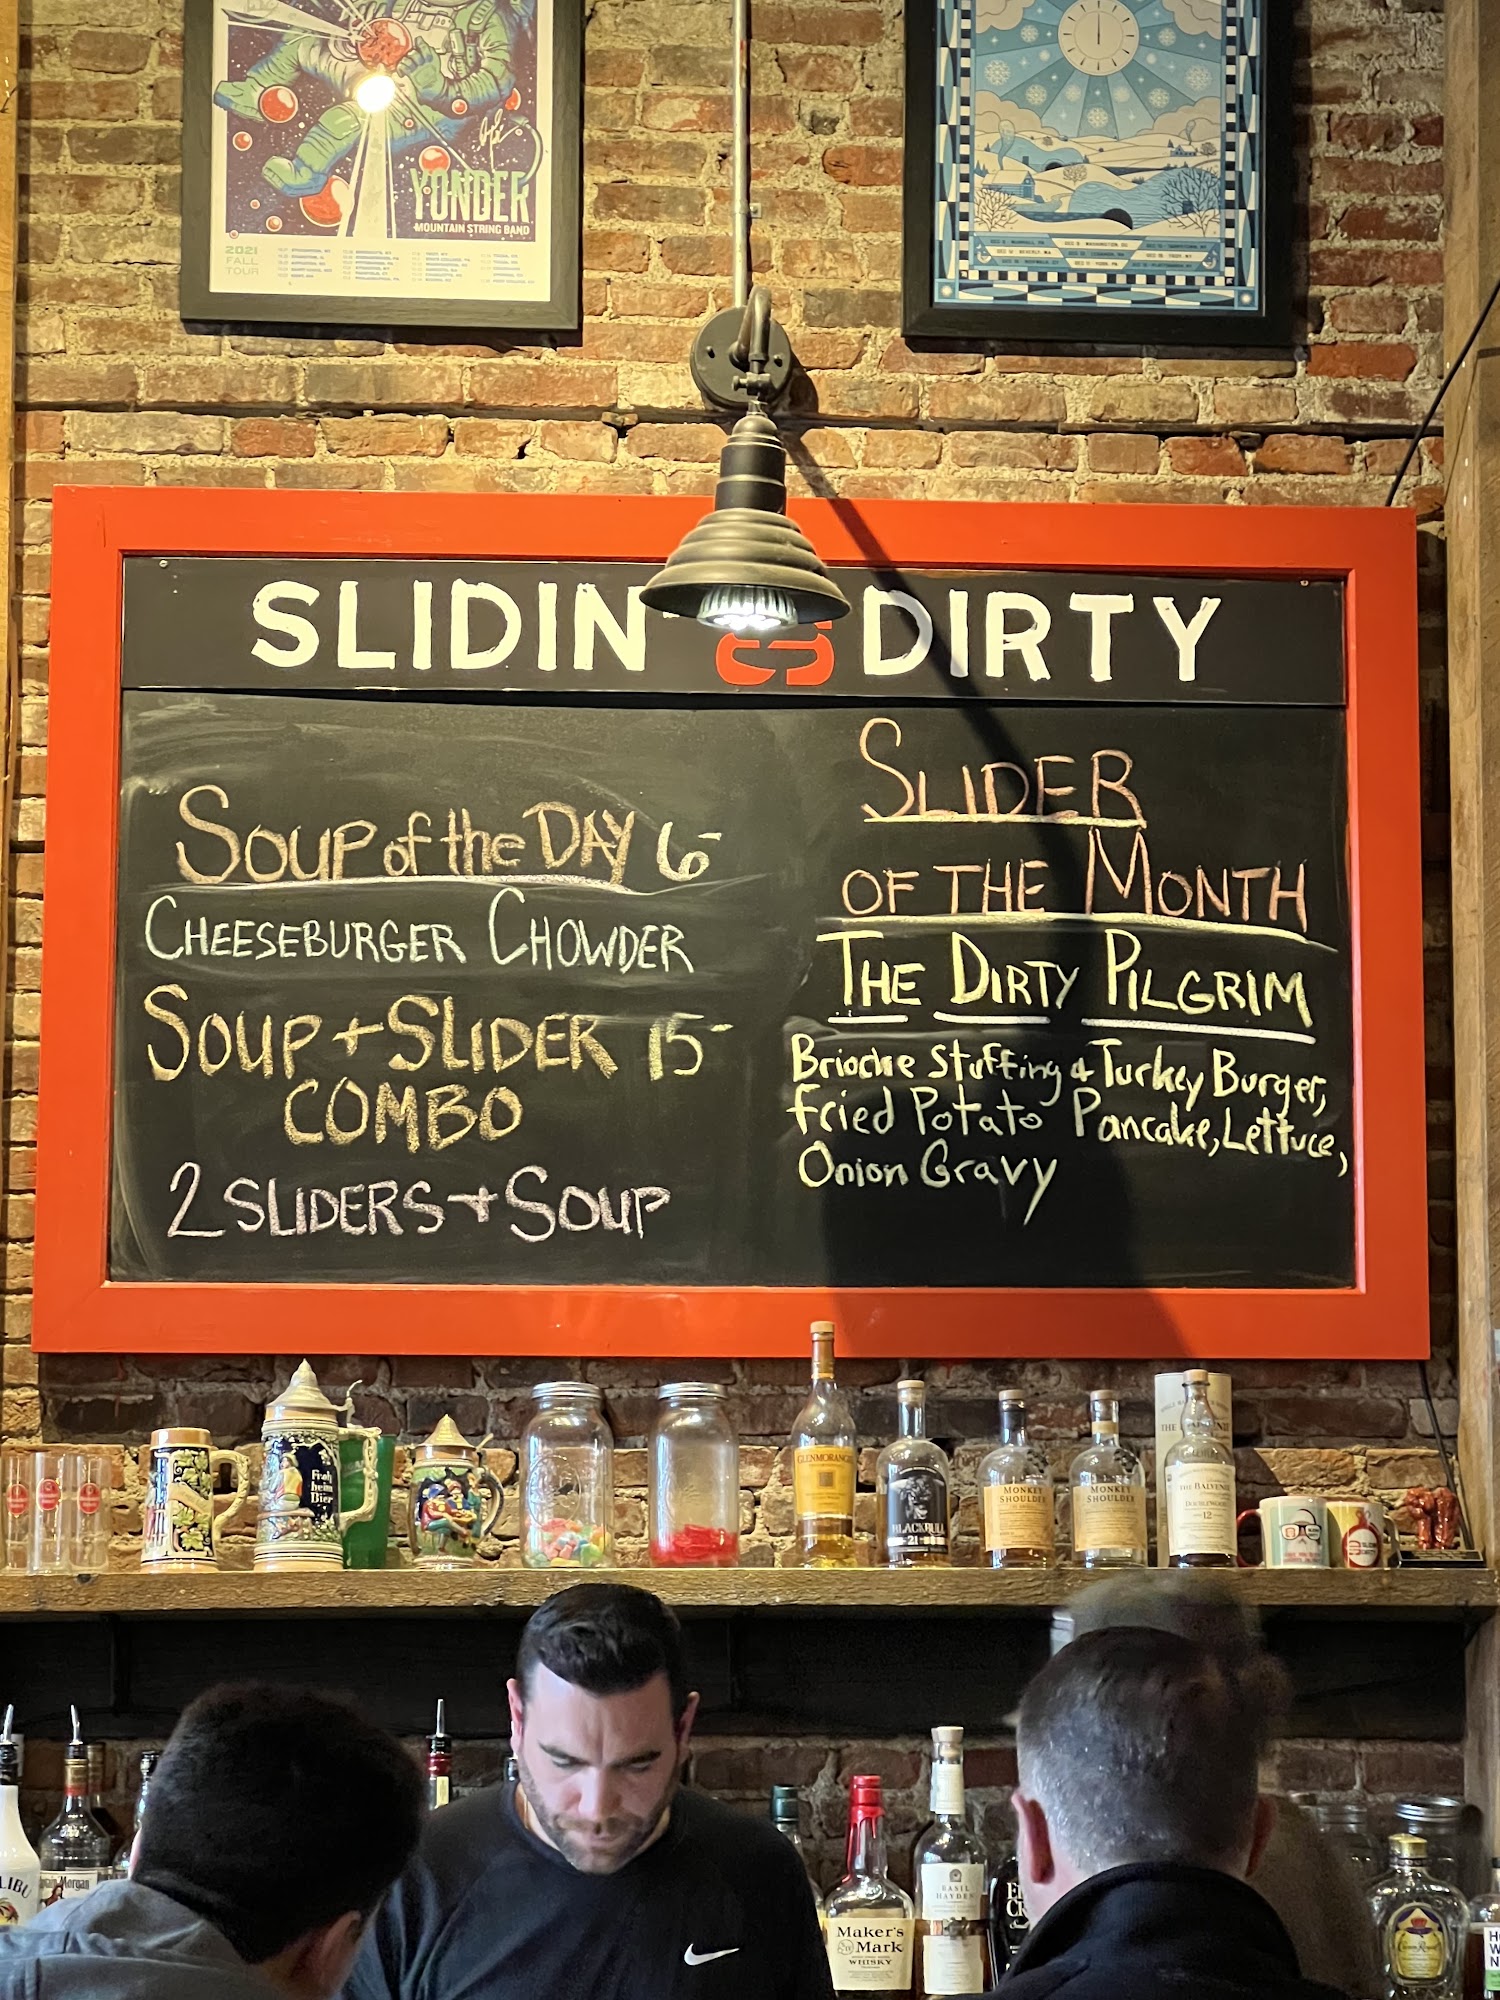 YONDER
MOUNTAIN STRING BAND
2021
FALL
TOUR
SLIDIN' DIRTY
SOUP of the DAY 6-
CHEESEBURGER CHOWDER
SOUP + SLIDER 15-
COMBO
2 SLIDERS + SOUP
SLIDER
OF THE MONTH
THE DIRTY PILGRIM
Brioche Stuffing & Turkey Burger,
Fried Potato Pancake, Lettuce,
Onion Gravy
Froh
heim
Bier
GLENMORANGIE
BLACK BULL
21
MONKEY
SHOULDER
MONKEY
SHOULDER
THE BALVENIE
DOUBLEWOOD
12
Morgan
Maker's
Mark
WHISKY
BASIL
HAYDEN
Crown Royal